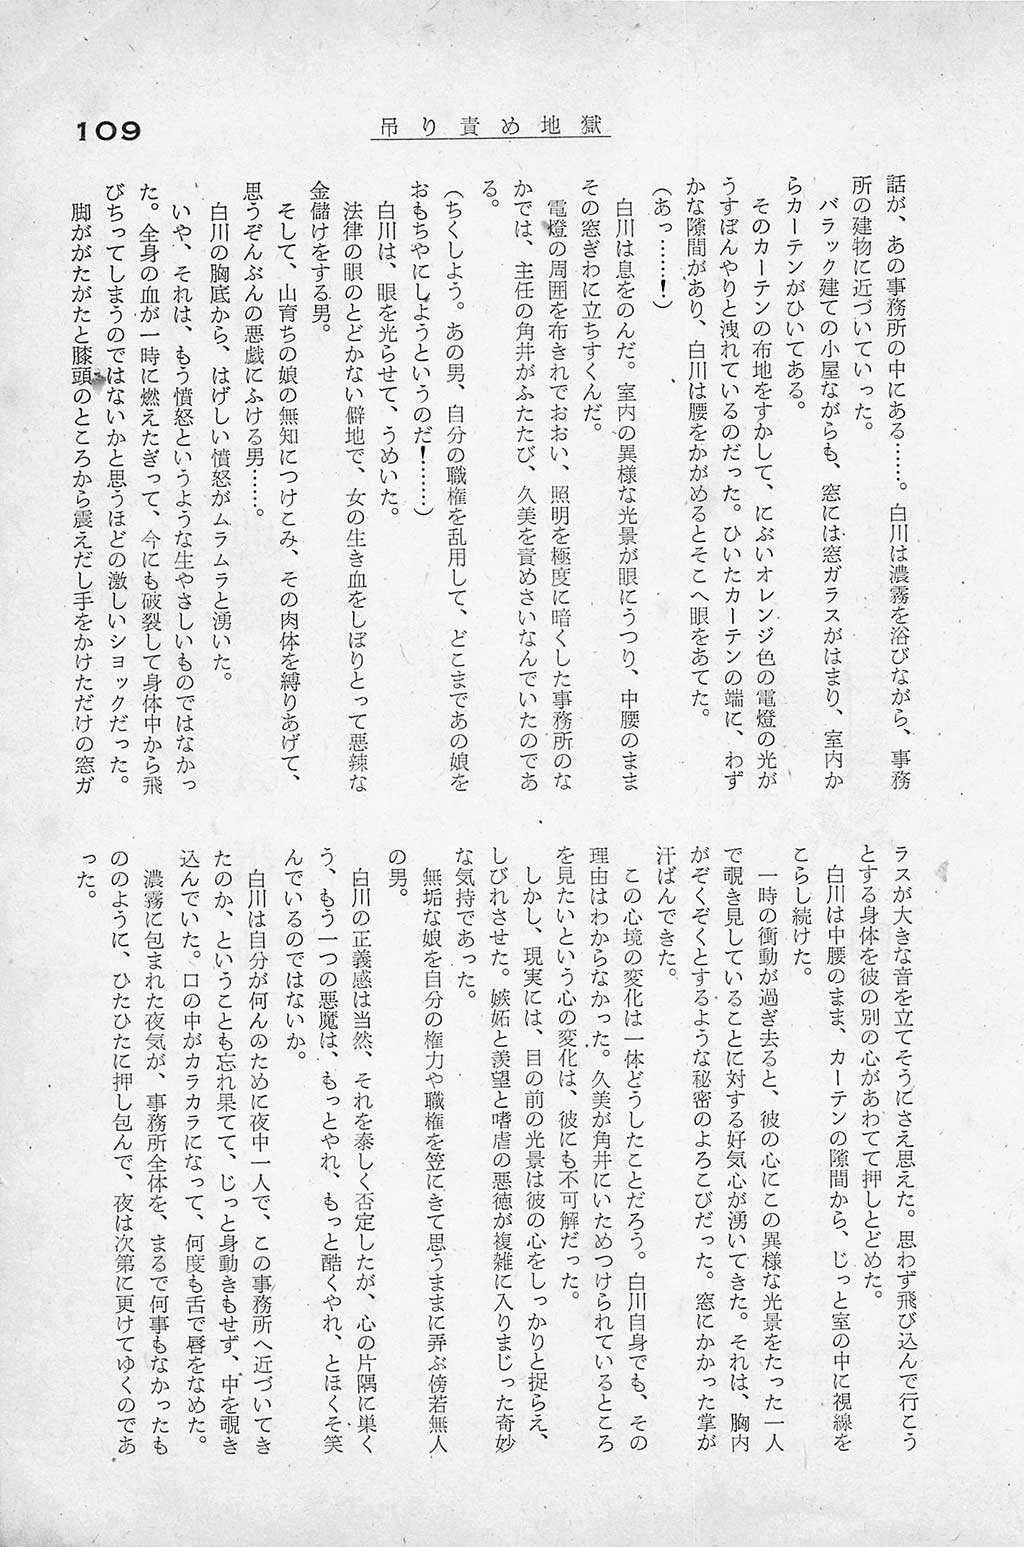 109
吊り責め地獄
話が、あの事務所の中にある……。白川は濃霧を浴びながら、事務
所の建物に近づいていった。
バラック建ての小屋ながらも、窓には窓ガラスがはまり、室内か
らカーテンがひいてある。
そのカーテンの布地をすかして、にぶいオレンジ色の電燈の光が
うすぼんやりと洩れているのだった。ひいたカーテンの端に、わず
かな隙間があり、白川は腰をかがめるとそこへ眼をあてた。
(あっ……!)
白川は息をのんだ。室内の異様な光景が眼にうつり、中腰のまま
その窓ぎわに立ちすくんだ。
電燈の周囲を布きれでおおい、照明を極度に暗くした事務所のな
かでは、主任の角井がふたたび、久美を責めさいなんでいたのであ
る。
(ちくしよう。あの男、自分の職権を乱用して、どこまであの娘を
おもちやにしようというのだ!……)
白川は、眼を光らせて、うめいた。
法律の眼のとどかない僻地で、女の生き血をしぼりとって悪辣な
金儲けをする男。
そして、山育ちの娘の無知につけこみ、その肉体を縛りあげて、
思うぞんぶんの悪戯にふける男……。
白川の胸底から、はげしい憤怒がムラムラと湧いた。
いや、それは、もう憤怒というような生やさしいものではなかっ
た。全身の血が一時に燃えたぎって、今にも破裂して身体中から飛
びちってしまうのではないかと思うほどの激しいショックだった。
脚ががたがたと膝頭のところから震えだし手をかけただけの窓ガ
ラスが大きな音を立てそうにさえ思えた。思わず飛び込んで行こう
とする身体を彼の別の心があわてて押しとどめた。
白川は中腰のまま、カーテンの隙間から、じっと室の中に視線を
こらし続けた。
一時の衝動が過ぎ去ると、彼の心にこの異様な光景をたった一人
で覗き見していることに対する好気心が湧いてきた。それは、胸内
がぞくぞくとするような秘密のよろこびだった。窓にかかった掌が
汗ばんできた。
この心境の変化は一体どうしたことだろう。白川自身でも、その
理由はわからなかった。久美が角井にいためつけられているところ
を見たいという心の変化は、彼にも不可解だった。
しかし、現実には、目の前の光景は彼の心をしっかりと捉らえ、
しびれさせた。嫉妬と羨望と嗜虐の悪徳が複雑に入りまじった奇妙
な気持であった。
無垢な娘を自分の権力や職権を笠にきて思うままに弄ぶ傍若無人
の男。
白川の正義感は当然、それを泰しく否定したが、心の片隅に巣く
う、もう一つの悪魔は、もっとやれ、もっと酷くやれ、とほくそ笑
んでいるのではないか。
白川は自分が何んのために夜中一人で、この事務所へ近づいてき
たのか、ということも忘れ果てて、じっと身動きもせず、中を覗き
込んでいた。口の中がカラカラになって、何度も舌で唇をなめた。
濃霧に包まれた夜気が、事務所全体を、まるで何事もなかったも
ののように、ひたひたに押し包んで、夜は次第に更けてゆくのであ
った。